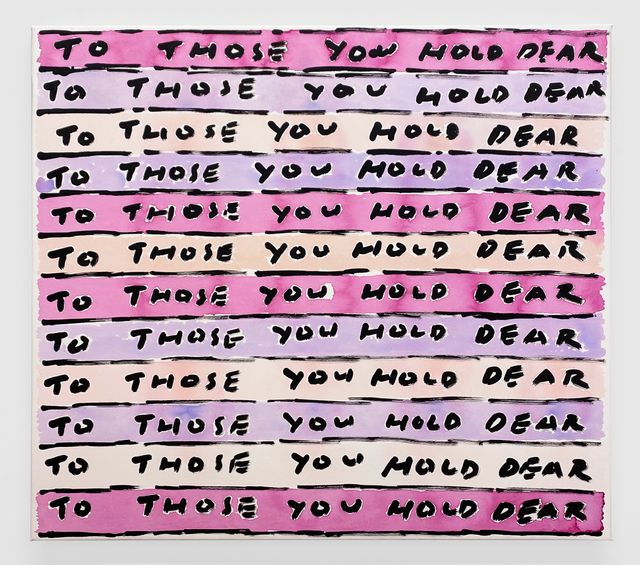 TO THOSE YOU HOLD DEAR
TO THOSE YOU HOLD DEAR
TO THOSE YOU HOLD DEAR
TO THOSE YOU HOLD DEAR
TO THOSE YOU HOLD DEAR
TO THOSE YOU HOLD DEAR
TO THOSE YOU HOLD DEAR
TO THOSE YOU HOLD DEAR
TO THOSE YOU HOLD DEAR
TO THOSE YOU HOLD DEAR
TO THOSE YOU HOLD DEAR
TO THOSE YOU HOLD DEAR